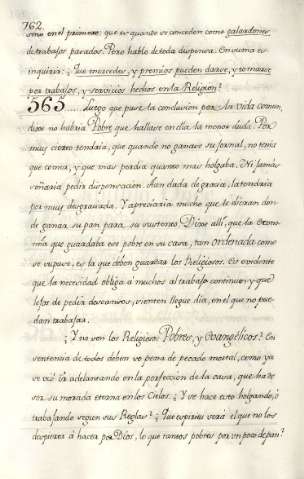 762
sino en él primero: que es quanto se conceden como galardones
de trabajos pasados. Pero hablo de toda dispensa. En suma es
inquirir: ¿Que mercedes, y premios pueden darse, y tomarse
por trabajos, y servicios hechos en la Religion?
565.... Luego que puse la conclusion por la vida comun,
dixe no habria Pobre que hallase en ella la menor duda. Por
muy cierto tendria, que quando no ganase su jornal, no tenia
que coma, y que mas perdia quanto mas holgaba. Ni jamás
soñaria pedir dispensacion. Aun dada de gracia, la tendria
por muy desgraciada. Y apreciaria mucho que le dieran don-
de ganar su pan para su sustento. Dixe alli, que la Econo-
mia que guardaba ese pobre en su casa, tan ordenada como
se supuse, es la que deben guardar los Religiosos. Es evidente
que la necesidad obliga á muchos al trabajo continuo: y que
lejos de pedir descansos, sienten llegue dia, en el que no pue-
dan trabajar.
¿Y no ven los Religiosos Pobres, y Evangelicos? En
sentencia de todos deben so pena de pecado mortal, como ya
se vió ir adelantando en la perfeccion de la casa, que ha de
ser su morada eterna en los Cielos. ¿Y se hace esto holgando, ó
trabajando segun sus Reglas? ¿Que espiritu será el que no los
despierta á hacer por Dios, lo que tantos pobres por un poco de pan?